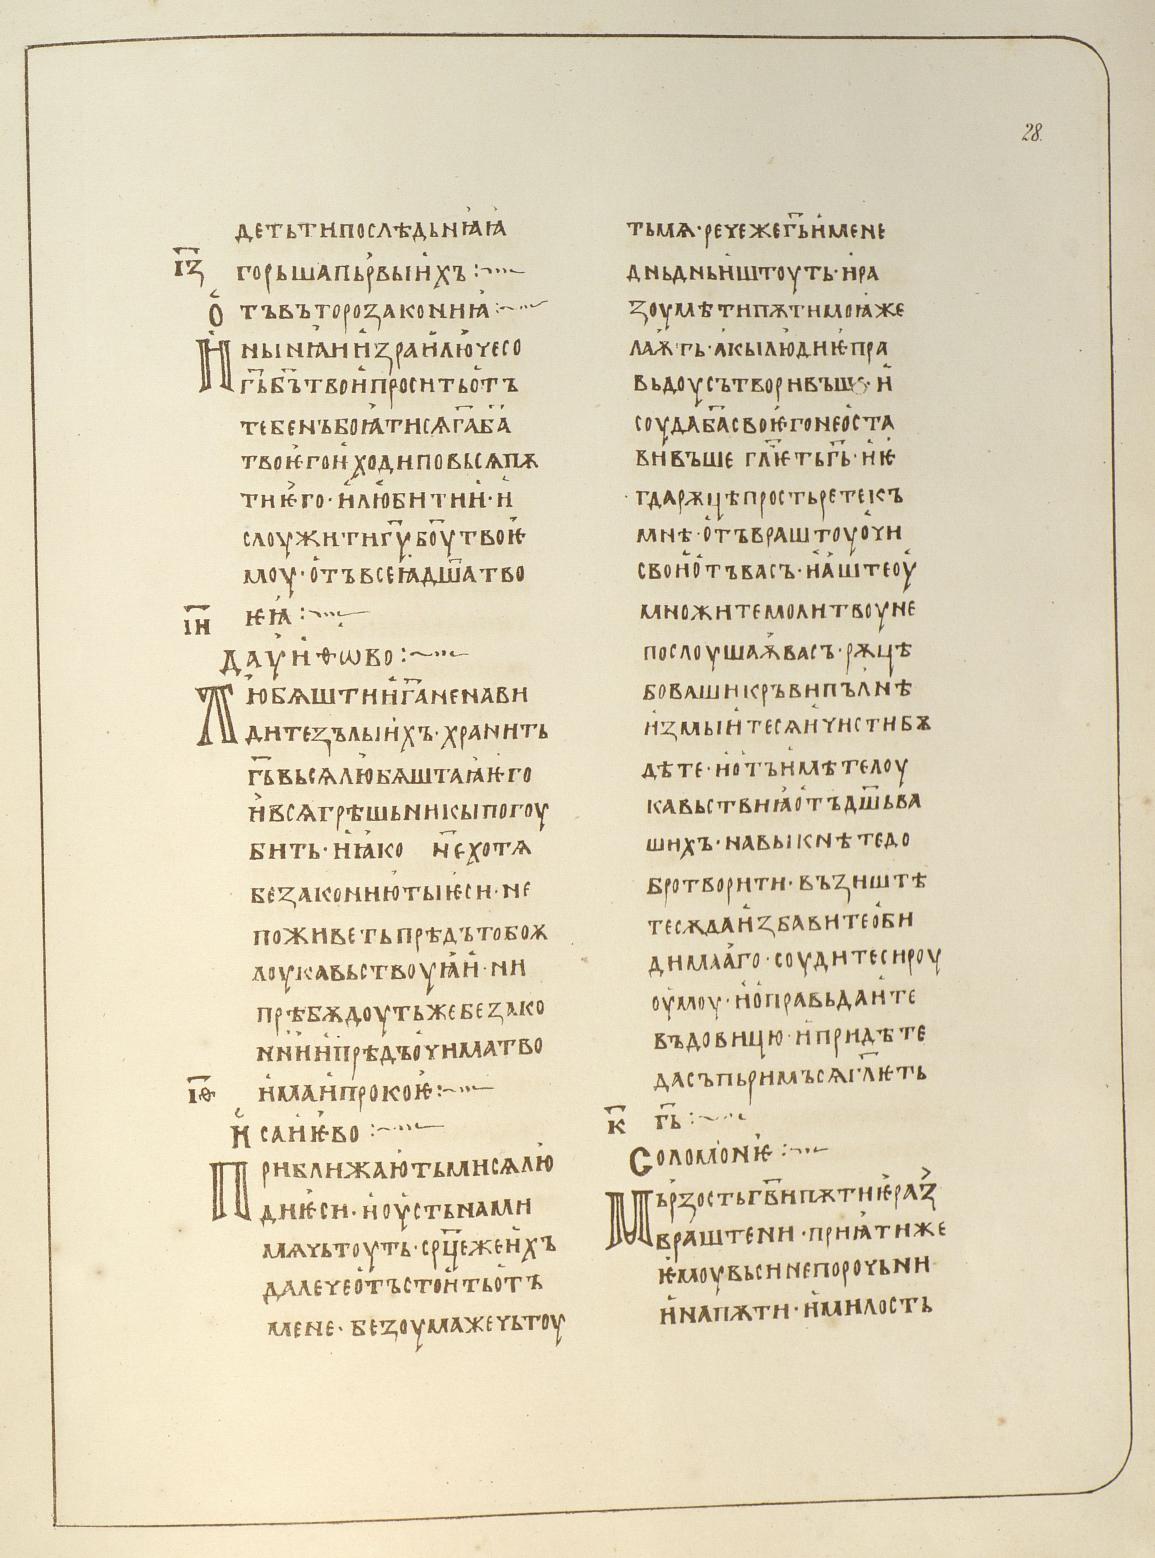 28.
детьтипослѣдьнꙗꙗ
І҃З горьшапьрвыихъ :~
Отъвъторозакониꙗ :~
Инынꙗиизраилючесо
г҃ьб҃ътвоипроситьотъ
тебенъбоꙗтисѧг҃аб҃а
твоѥгоиходиповьсѧпѫ
тиѥго·илюбитии·и
слоужитиг҃у бо҃утвоѥ
моу·отъвсеꙗдш҃атво
І҃Н ѥꙗ :~
Дауиѳѡво :~
Любѧштииг҃аненави
дитезълыихъ·хранить
г҃ьвьсѧлюбѧштаꙗѥго
ивсѧгрѣшьникыпогоу
бить·иꙗко не҃хотѧ
безакониютыѥси·не
поживетьпрѣдътобоѫ
лоукавьствоуꙗи·ни
прѣбѫдоутьжебезако
ниипрѣдъочиматво
І҃Ѳ имаипрокоѥ :~
Исаиѥво :~
Приближаютьмисѧлю
диѥси·иоустьнами
мѧчьтоуть·ср҃цежеихъ
далечеотъстоитьотъ
мене·безоумажечьтоу
тьмѧ·речежег҃ьимене
дньдньиштоуть·ира
зоумѣтипѫтимоꙗже
лаѫть·акылюдиѥпра
вьдоусътворивъш·и
соудаб҃асвоѥгонеоста
вивъше гл҃ѥтьг҃ь·иѥ
гдарѫцѣпростьретекъ
мнѣ·отъвраштоуочи
своиотъвасъ·иаштеоу
множитемолитвоуне
послоушаѫвасъ·рѫцѣ
бовашикръвипълнѣ
измыитесѧичистибѫ
дѣте·иотъимѣтелоу
кавьствиꙗотъдш҃ьва
шихъ·навыкнѣтедо
бротворити·възиштѣ
тесѫдаизбавитеоби
димааго·соудитесироу
оумоу·иоправьдаите
въдовицю·ипридѣте
дасъпьримъсѧгл҃ѥть
К҃ г҃ь :~
Соломонѥ :~
Мьрзостьгв҃ипѫтиѥраз
враштени·приꙗтиже
ѥмоувьсинепорочьни
инапѫти·имилость